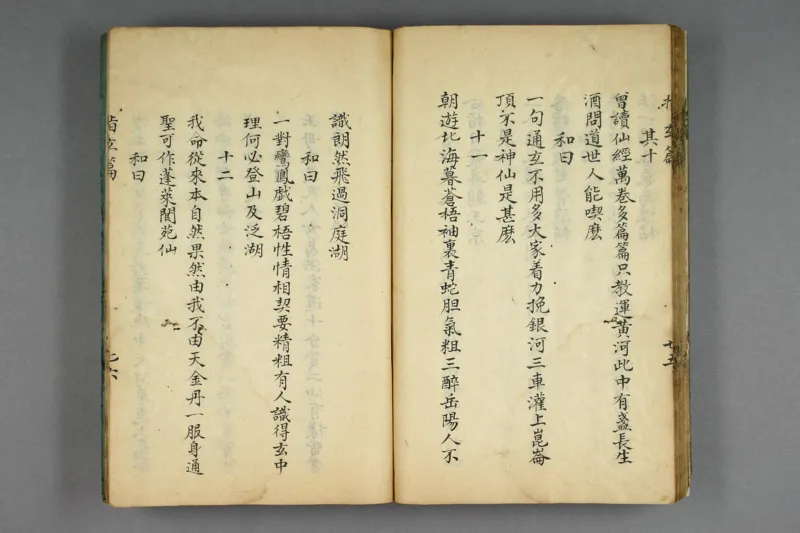 指玄篇
其十
曾讀仙經萬卷多篇篇只教運黃河此中有盞長生
酒問道世人能喫麽
和曰
一句通玄不用多大家着力挽銀河三車灌上崑崙
頂不是神仙是甚麽
十一
朝遊北海暮蒼梧袖裏青蛇胆氣粗三醉岳陽人不
七五
識朗然飛過洞庭湖
和曰
一對鸞鳳戲碧梧性情相契要精粗有人識得玄中
理何必登山及泛湖
十二
我命從來本自然果然由我不由天金丹一服身通
聖可作蓬萊閬苑仙
和曰
指玄篇
七六